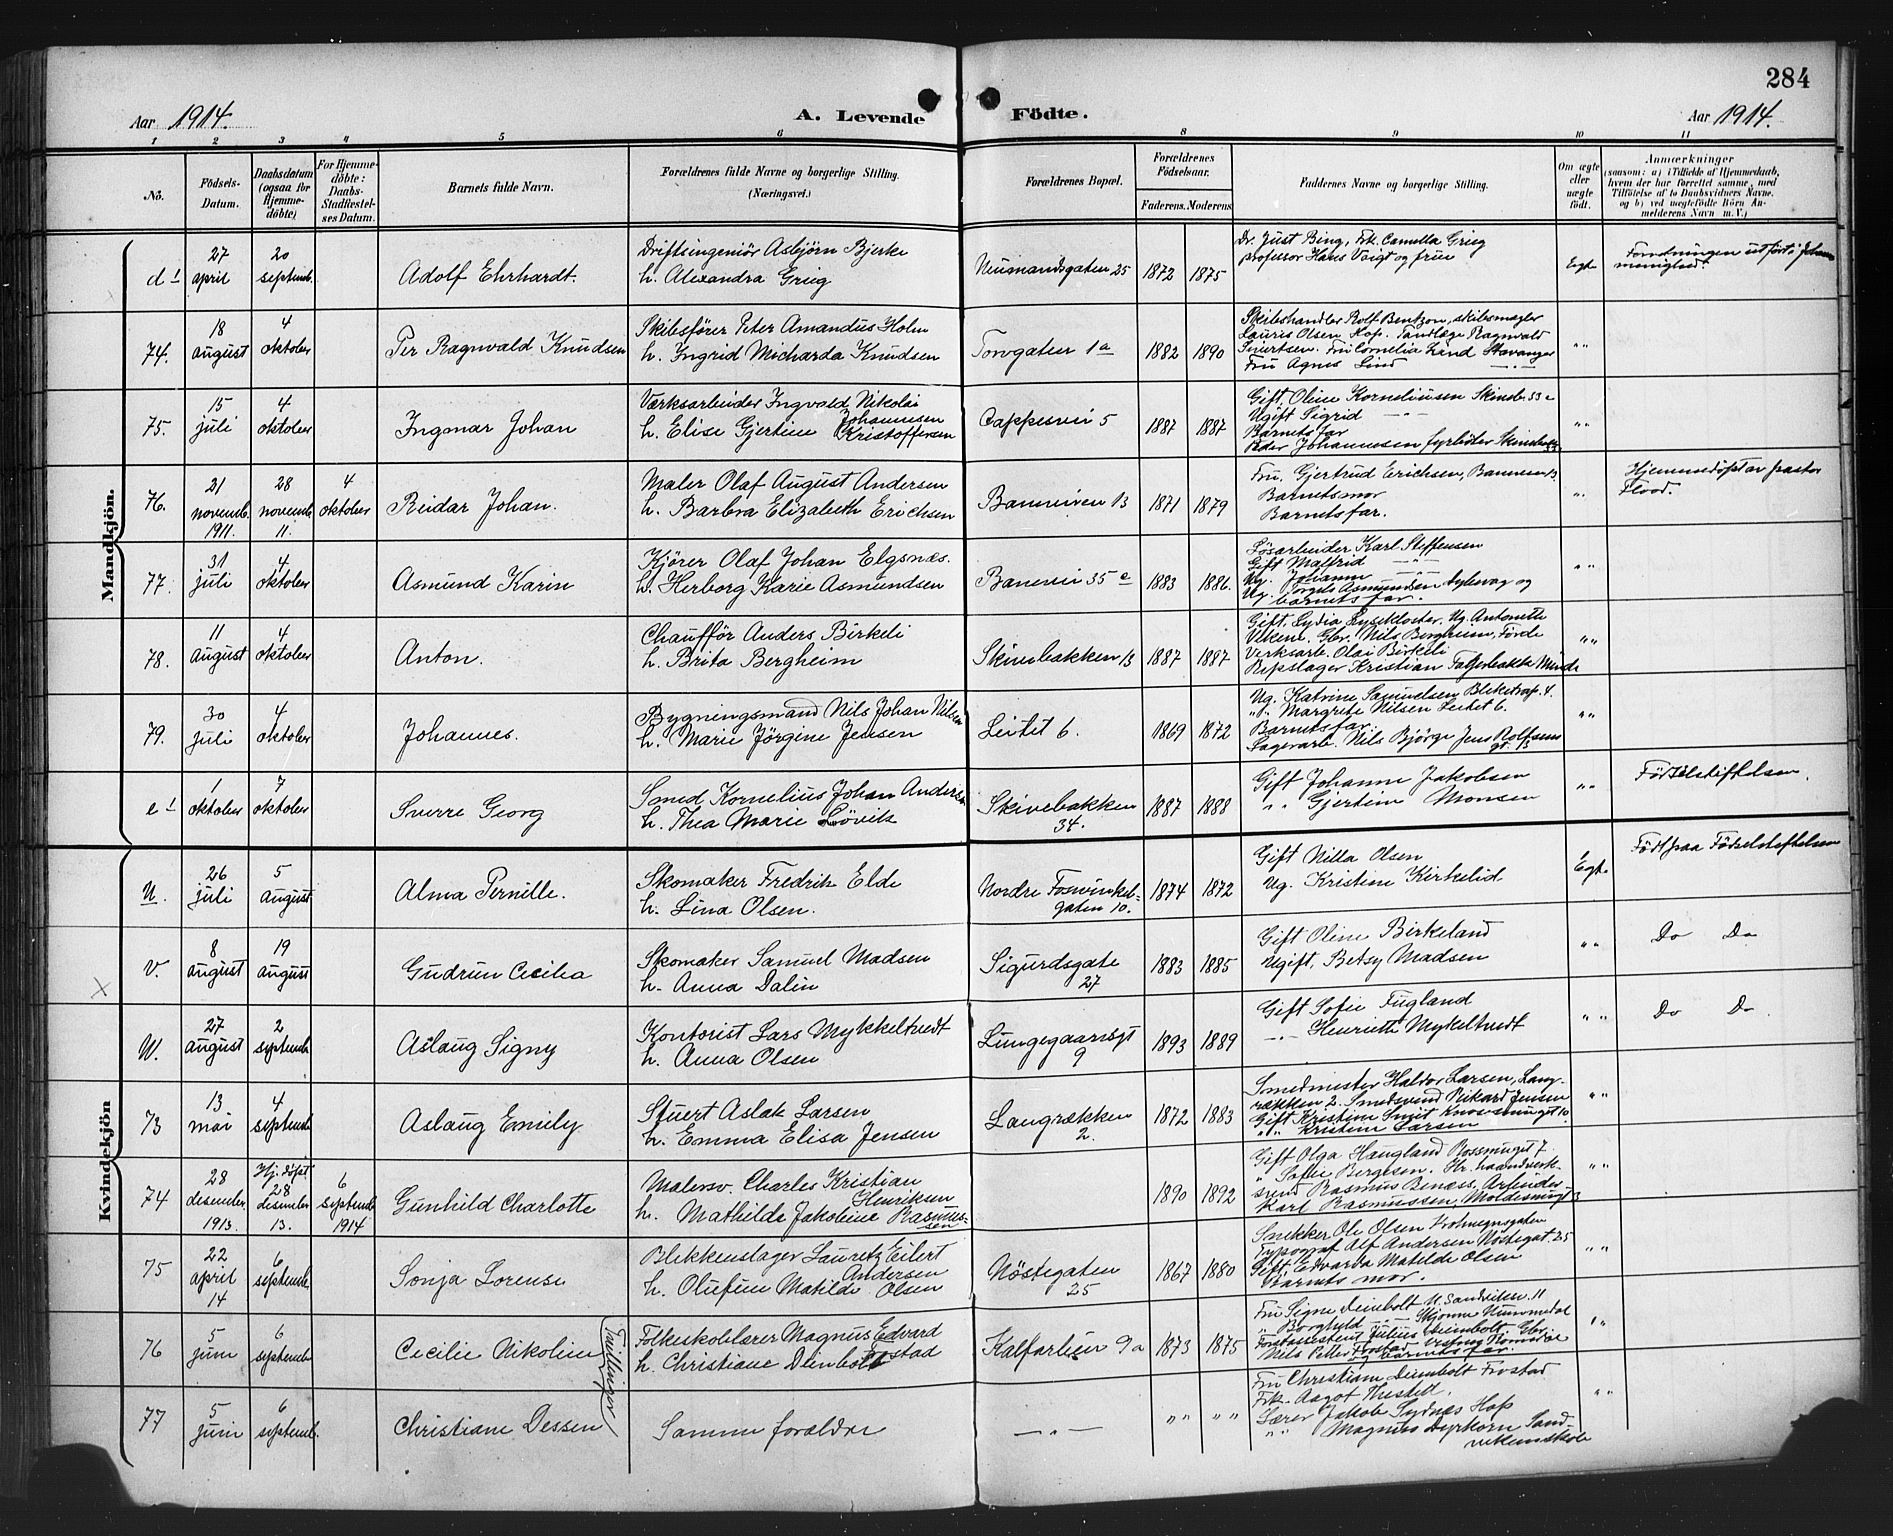 284
Aar 1914.
A. Levende Födte.
Aar 1914.
1 2 3 4 5 6 8 9 10 11
No.
Födsels-Datum.
Daabsdatum (ogsaa for Hjemmedöbte)
For Hjemmedöbte: Daabs-Stadfestelses Datum.
Barnets fulde Navn.
Forældrenes fulde Navne og borgerlige Stilling.
(Næringsvei.)
Forældrenes Bopæl.
Forældrenes Födselsaar.
Faderens. Moderens.
Faddernes Navne og borgerlige Stilling.
Om ægte eller uægte födt.
Anmærkninger
(saasom: a) i Tilfælde af Hjemmedaab, hvem der har forrettet samme, med Tilföielse af to Daabsvidners Navne, og b) ved uægtefödte Börn Anmelderens Navn m. V.)
Mandkjön.
d 1 27 april 20 septemb. Adolf Ehrhardt.
Driftsingeniör Asbjörn Bjerke
h. Alexandra Grieg
Neumandsgaten 25 1872 1875
Dr. Just Bing, Frk. Camilla Grieg
professor Hans Voigt og frue
Egte
Forretningen utfört i Johannes
menighed.
74. 18 august 4 oktober Per Ragnvald Knudsen
Skibsförer Peter Amandus Holm
h. Ingrid Micharda Knudsen
Torvgaten 1a 1882 1890
Skibshandler Rolf Bentzon, skibsmægler
Lauris Olsen Hop. Tandlæge Ragnvald
Fru Cornelia Lind Stavanger
Fru Agnes Lind
75. 15 juli 4 oktober Ingmar Johan
Værksarbeider Ingvald Nikolai Johannesen
h. Elise Gjertine Kristoffersen
Cappesvei 5 1887 1887
Gift. Oline Korneliusen Skineb. 53
Ugift Sigrid
Barnets far
Peder Johannesen fyrböter
76. 21 novemb. 1911. 28 novemb. 11. 4 oktober Reidar Johan.
Maler Olaf August Andersen
h. Barbra Elizabeth Erichsen
Baneveien 13 1871 1879
Fru. Gjertrud Erichsen, Baneveien 13
Barnets mor
Barnets far.
Hjemmedöpt av pastor
Flood.
77. 31 juli 4 oktober Asmund Karin
Kjörer Olaf Johan Elgsnæs.
h. Herborg Karie Asmundsen
Banevei 35 e 1883 1886.
Lösarbeider Karl Steffensen
Gift Malfrid
Ug. Johanne
Ug. Asmundsen og
barnets far.
78. 11 august 4 oktober Anton.
Chaufför Anders Birkeli
h. Brita Bergheim
Skivebakken 13 1887 1887
Gift. Lydia Lysekloster, Ug. Antonette
Vikene. Gbr. Nils Bergheim, Förde
Verksarb. Olai Birkeli
Repslager Kristian Minde
79. 30 juli 4 oktober Johannes.
Bygningsmand Nils Johan Nilsen
h. Marie Jörgine Jensen
Leitet 6. 1869 1872
Ug. Katrine Samuelsen Bleketrap. 4.
Margrete Nilsen Leitet 6.
Barnets far.
Lagerarb. Nils Björge Jens Rolfsens gt. 13
e 1 1 oktober 7 oktober Sverre Georg
Smed Kornelius Johan Andersen
h. Thea Marie Lövik
Skivebakken 34. 1887 1888
Gift Johanne Jakobsen
" " Gjertine Monsen
Födselstiftelsen.
Kvindekjön
U. 26 juli 5 august Alma Pernille.
Skomaker Fredrik Elde
h. Lina Olsen.
Nordre Fosvinkelgaten 10. 1874 1872
Gift Nilla Olsen
Ug. Kristine Kirkelid
Egte
Födt paa Födselstiftelsen
V. 8 august 19 august Gudrun Cecilia
Skomaker Samuel Madsen
h. Anna Dalin
Sigurdsgate 27 1883 1885
Gift Oline Birkeland
Ugift, Betsy Madsen
Do Do
W. 27 august 2 septemb. Aslaug Signy
Kontorist Lars Mykkeltvedt
h. Anna Olsen
Lungegaardsgt 9 1893 1889
Gift Sofie Fugland
Henriette Mykeltvedt
Do Do.
73 13 mai 4 septemb. Aslaug Emily
Stuert Aslak Larsen
h. Emma Elisa Jensen
Langrækken 2. 1872 1883
Smedmester Haldor Larsen, Langrækken 2. Smedsvend Rikard Jensen
Gift Kristine Smit
" " Kristine Larsen
74 28 desember 1913. Hj. döpt 28 desember 13. 6 septemb. 1914 Gunhild Charlotte
Malersv. Charles Kristian Henriksen
h. Mathilde Jakobine Rasmussen
1890 1892
Gift Olga Haugland Rossmuget 7.
" Sofie Bergesen. Hr. haandverksvend Rasmus Benæs, Arbeider
Karl Rasmussen, Moldesmuget 3
75 22 april 14 6 septemb. Sonja Lorense
Blikkenslager Lauretz Eilert Andersen
h. Olufine Matilde Olsen
Nöstegaten 25 1867 1880
Snekker Ole Olsen
Typograf Alf Andersen Nöstegat. 25
Gift. Edvarda Matilde Olsen
Barnets mor.
76 5 juni 6 septemb. Cecilie Nikoline
Tvillinger
Folkeskolelærer Magnus Edvard Frostad
h. Christiane Deinbolt
Kalfarlien 9a 1873 1875
Fru Signe Deinbolt N. Sandviken. 11
" Borghild
Forstassistent Julius Deinbolt Gbr.
Nils Petter Frostad
og barnets far.
77 5 juni 6 septemb. Christiane Dessen
Samme foraldre
Fru Christiane Deinbolt Frostad
Frk. Aagot Thestell.
Lærer Jakob Sydnæs Hop
" " Magnus Dyrkorn Sandvikenskole